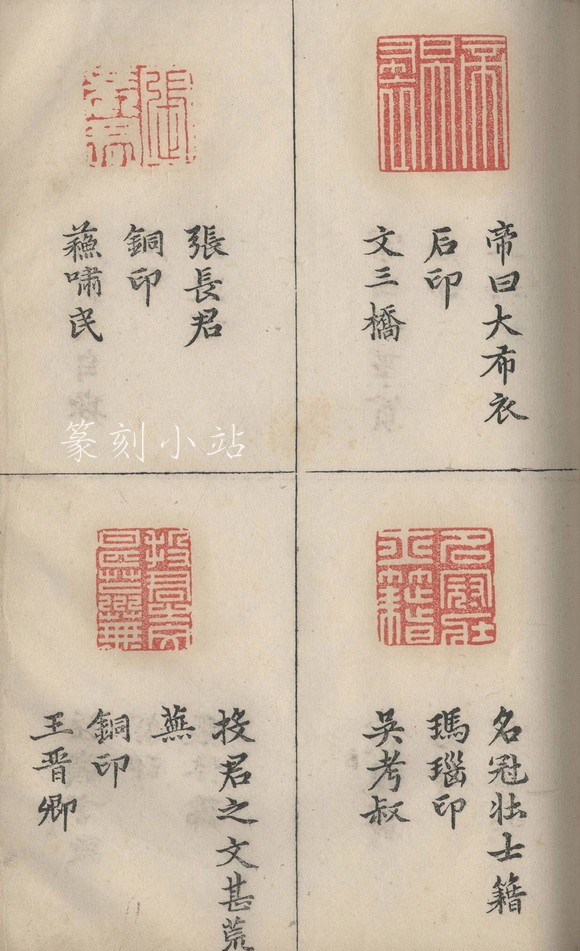 帝曰大布衣
石印
文三橋
張長君
銅印
蘓嘯民
篆刻小站
名冠壮士籍
瑪瑙印
吳考叔
投君之文甚荒
蕪
銅印
王晋卿